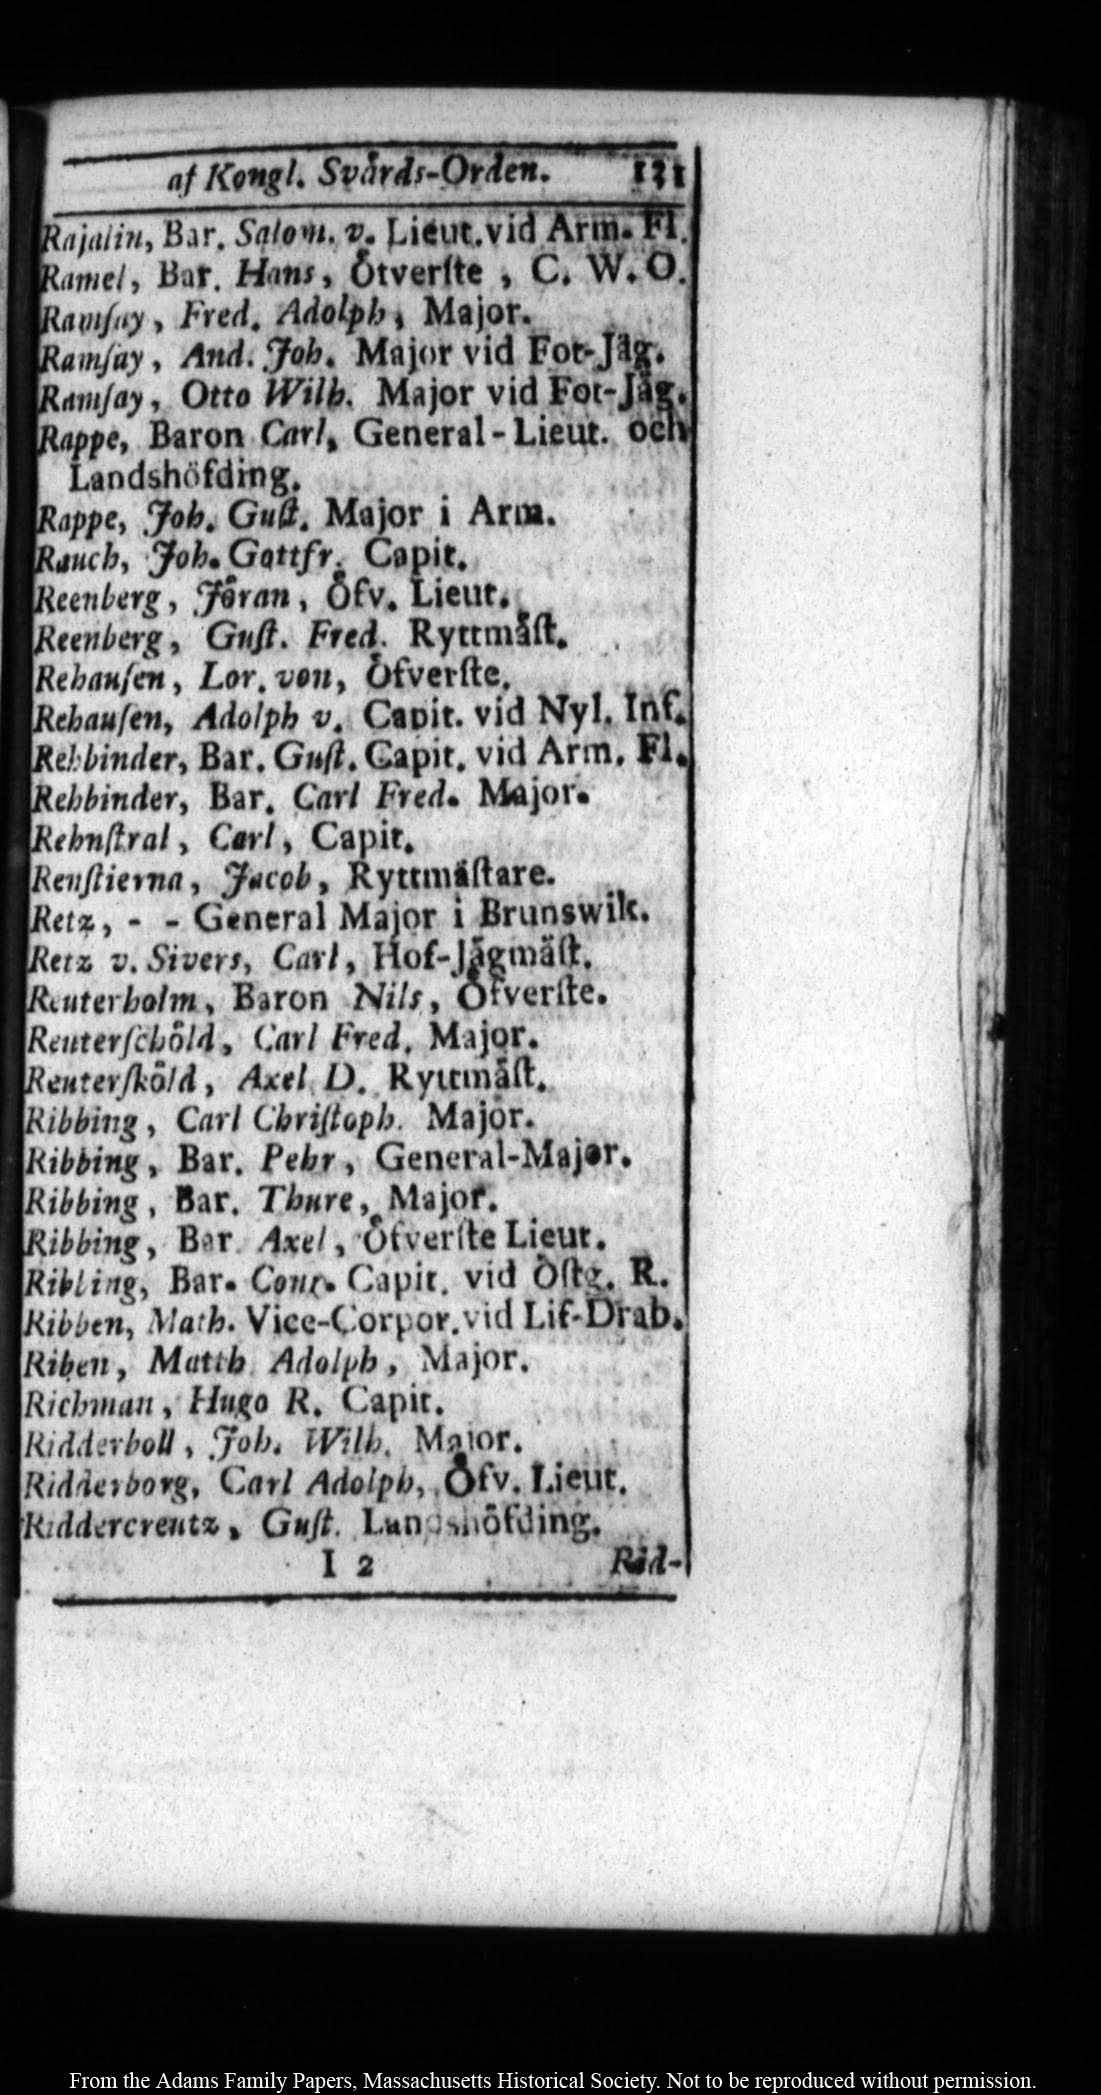 af Kongl. Svårds-Orden. 131
Rajalin, Bar. Salom. v. Lieut. vid Arm. Fl.
Ramel, Bar. Hans, Öfverſte, C. W. O.
Ramſay, Fred. Adolph, Major.
Ramſay, And. Joh. Major vid Fot-Jäg.
Ramſay, Otto Wilh. Major vid Fot-Jäg.
Rappe, Baron Carl, General-Lieut. och
Landshöfding.
Rappe, Joh. Guſt. Major i Arm.
Rauch, Joh. Gottfr. Capit.
Reenberg, Jöran, Öfv. Lieut.
Reenberg, Guſt. Fred. Ryttmäſt.
Rehauſen, Lor. von, Öfverſte.
Rehauſen, Adolph v. Capit. vid Nyl. Inf.
Rehbinder, Bar. Guſt. Capit. vid Arm. Fl.
Rehbinder, Bar. Carl Fred. Major.
Rehnſtral, Carl, Capit.
Renſtierna, Jacob, Ryttmäſtare.
Retz, - - General Major i Brunswik.
Retz v. Sivers, Carl, Hof-Jägmäſt.
Reuterholm, Baron Nils, Öfverſte.
Reuterſchöld, Carl Fred. Major.
Reuterſköld, Axel D. Ryttmäſt.
Ribbing, Carl Chriſtoph. Major.
Ribbing, Bar. Pehr, General-Major.
Ribbing, Bar. Thure, Major.
Ribbing, Bar. Axel, Öfverſte Lieut.
Ribbing, Bar. Conr. Capit. vid Öſtg. R.
Ribben, Math. Vice-Corpor. vid Lif-Drab.
Riben, Matth. Adolph, Major.
Richman, Hugo R. Capit.
Ridderboll, Joh. Wilh. Major.
Ridderborg, Carl Adolph, Öfv. Lieut.
Riddercreutz, Guſt. Landshöfding.
I 2 Rid-
From the Adams Family Papers, Massachusetts Historical Society. Not to be reproduced without permission.